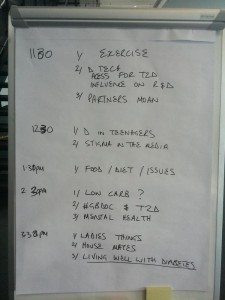 11:30 1/ EXERCISE
2/ D TECH
ACCESS FOR T2D
INFLUENCE ON R&D
3/ PARTNERS MOAN
12:30 1/ D IN TEENAGERS
2/ STIGMA IN THE MEDIA
1:30PM 1/ FOOD / DIET / ISSUES
2:30PM 1/ LOW CARB ?
2/ #GBDOC & T2D
3/ MENTAL HEALTH
3:30PM 1/ LADIES THINGS
2/ HOUSE MATES
3/ LIVING WELL WITH DIABETES